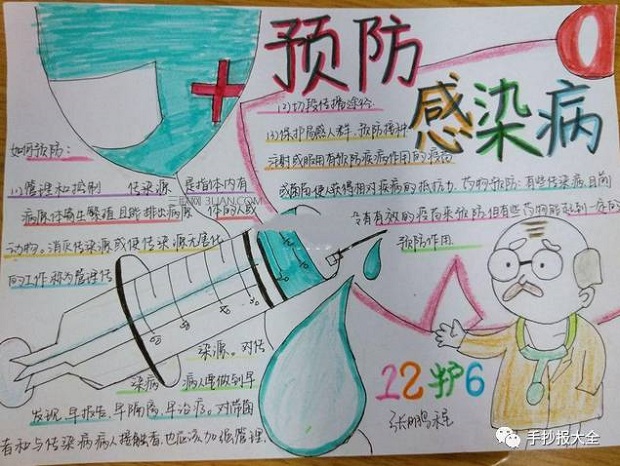 预防
感染病
如何预防：
(1)管理和控制 传染源 是指体内有
病原体寄生繁殖，且能排出病原 体的人或
动物。消灭传染源或使传染源无害化
的工作称为管理传
染源。对传
染病 病人要做到早
发现、早报告、早隔离、早治疗。对带菌
者和与传染病病人接触者，也应该加强管理。
(2)切段传播途径
(3)保护易感人群。预防接种
注射或服用有预防疾病作用的疫苗
或菌苗使人获得相对疾病的抵抗力。药物预防：有些传染病，目前
没有有效的疫苗来预防，但有些药物能起到一定的
预防作用
三联网 3LIAN.COM
12护6
手抄报大全